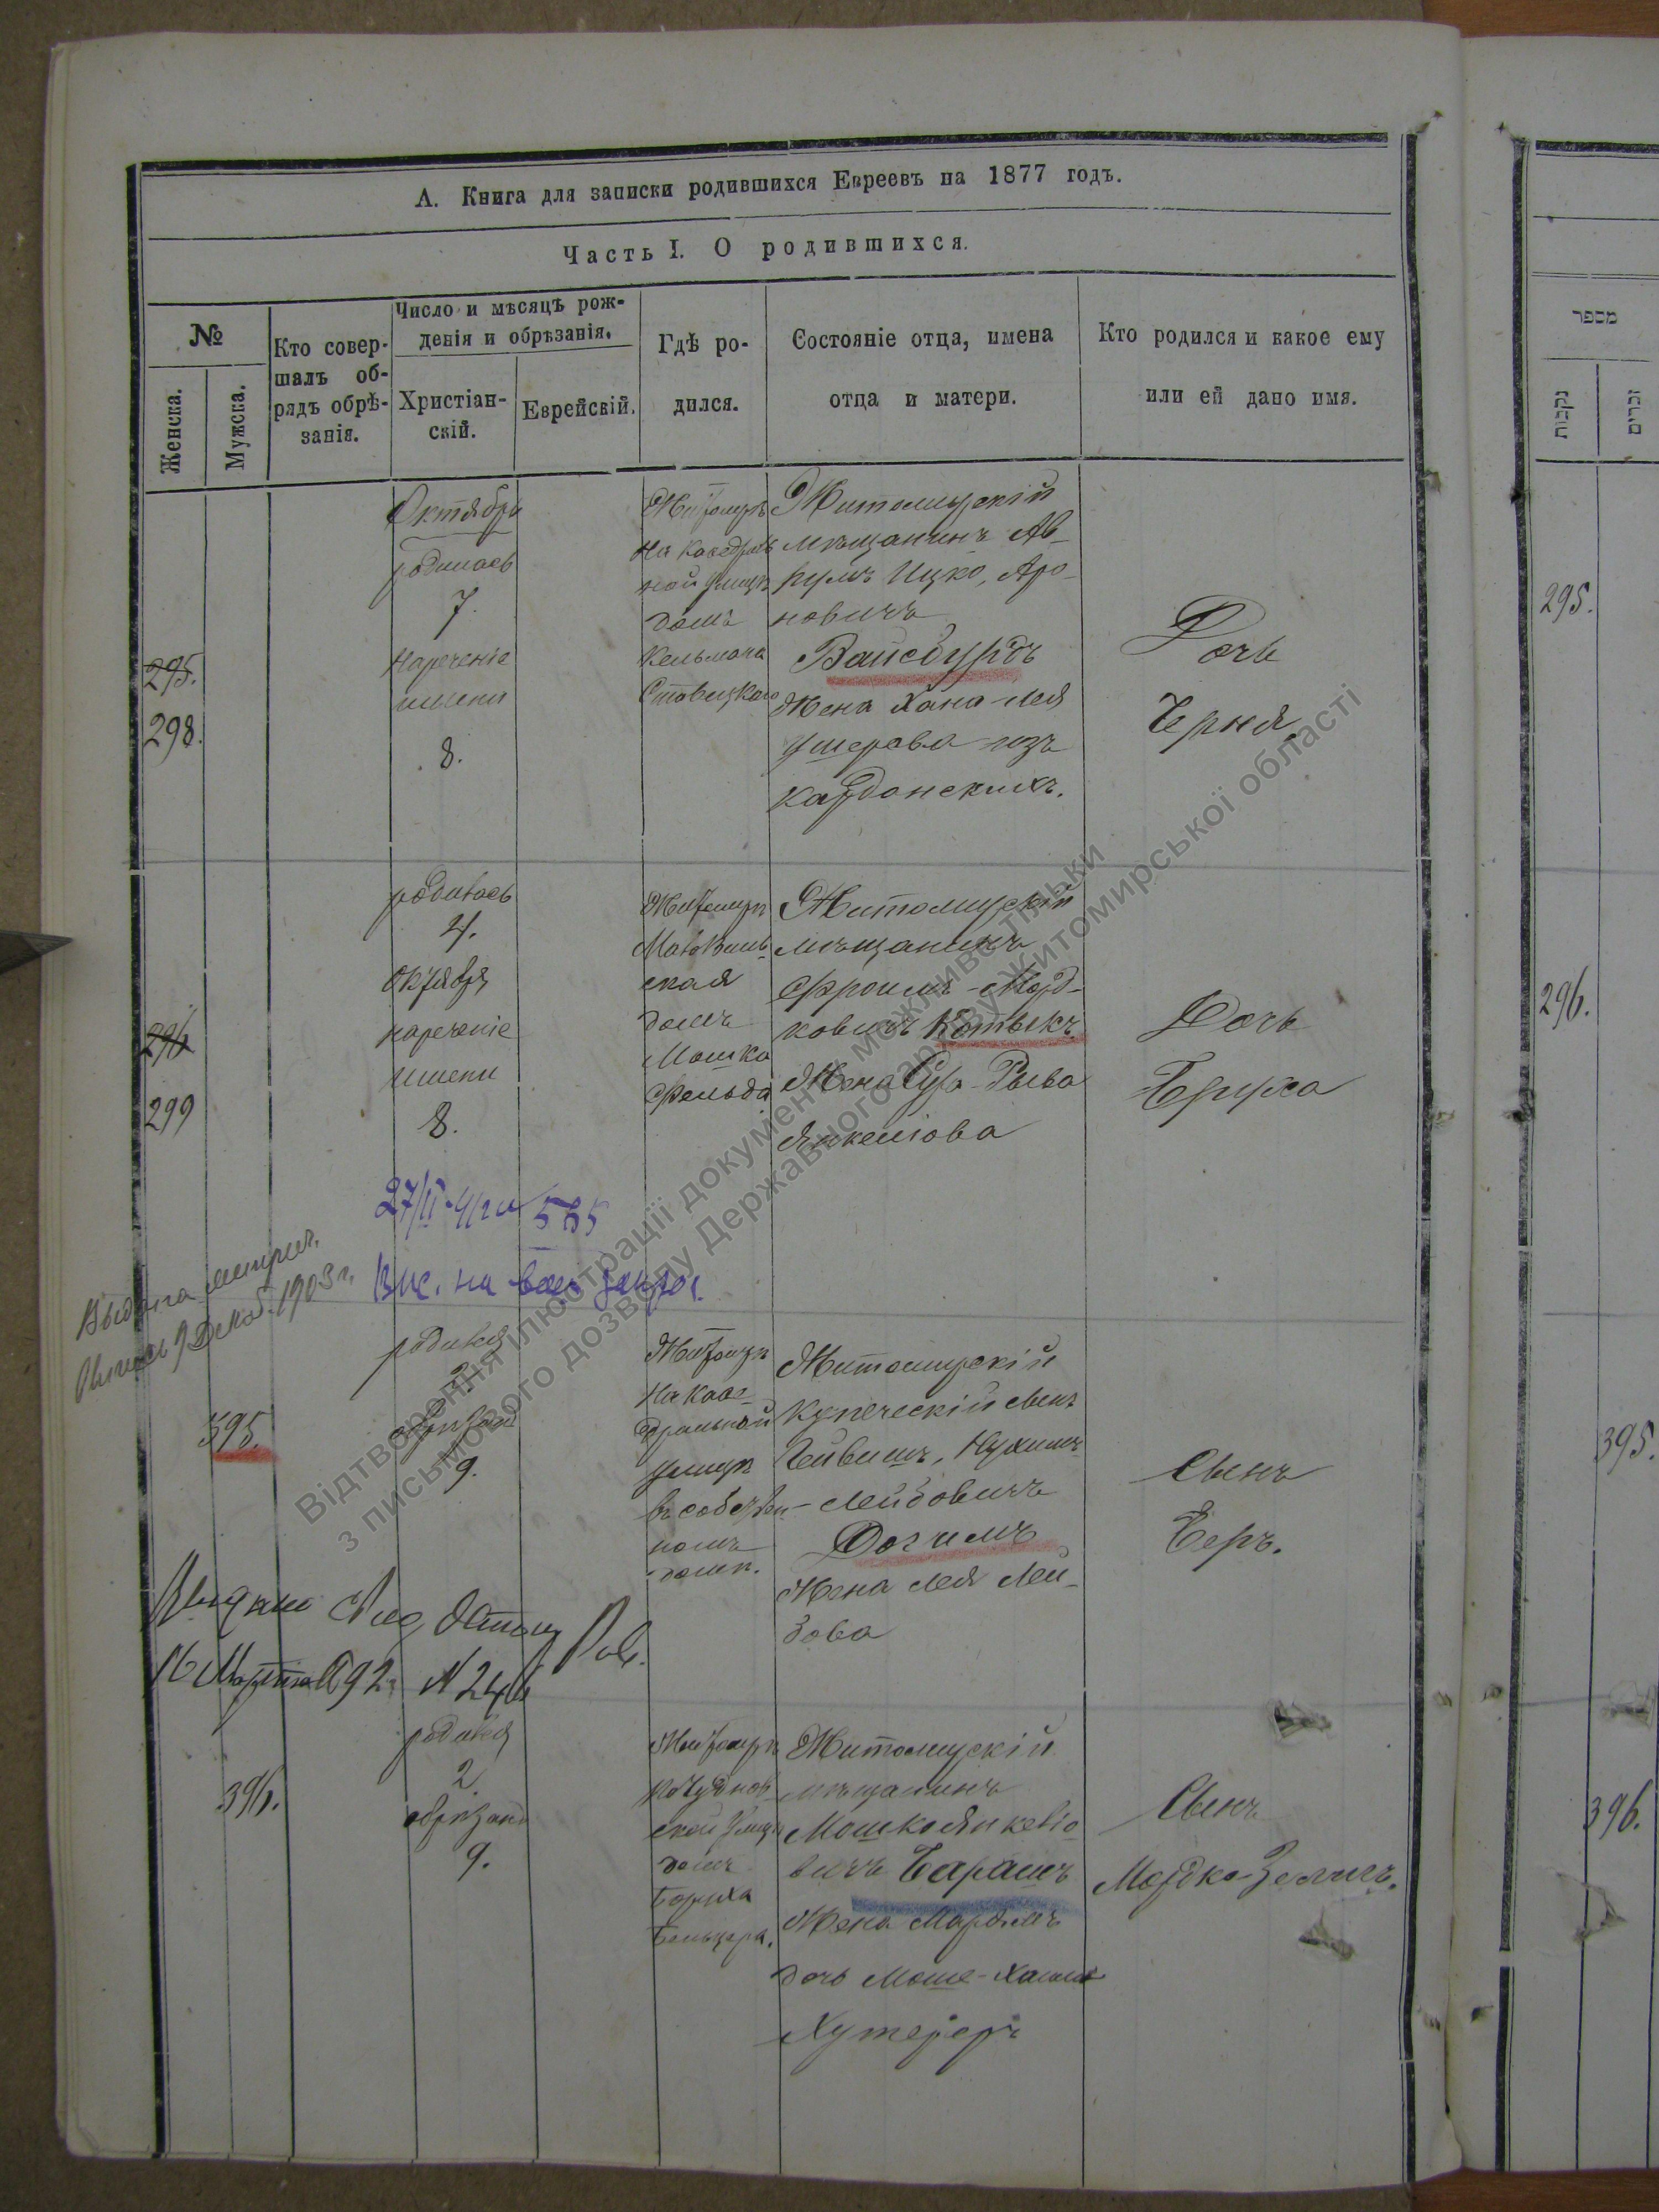 А. Книга для записки родившихся Евреевъ на 1877 годъ.
Часть I. О родившихся.
№
Женска.
Мужска.
Кто совер-
шалъ об-
рядъ обрѣ-
занія.
Число и мѣсяцъ рож-
денія и обрѣзанія.
Христіан-
скій.
Еврейскій.
Гдѣ ро-
дился.
Состояніе отца, имена
отца и матери.
Кто родился и какое ему
или ей дано имя.
295.
298.
Октября
родилась
7.
Нареченіе
имени
8.
Житомиръ
На Кафедраль
ной улицѣ
домъ
Кельмана
Ставицкаго
Житомирскій
мѣщанинъ Ав-
румъ Ицко, Аро-
новичъ
Вайсбурдъ
Жена Хана-Лея
Ушерова изъ
Кардонскихъ.
Дочь
Черня
296
299
родилась
4.
Октября
нареченіе
имени
8.
Житомиръ
ская
домъ
Мошка
Фельда
Житомирскій
мѣщанинъ
Фроимъ-Морд-
ковичъ Котыкъ
Жена Сура-Рыва
Янкеліова
Дочь
Бруха
27/II-41 585
на ваш запрос
Выдана метрич.
1903 г.
395.
родился
2.
обрѣзанъ
9.
Житомиръ
На Кафе-
дральной
улицѣ
въ собствен-
номъ
домѣ.
Житомирскій
Купеческій сынъ
Нухимъ-
Лейбовичъ
Догимъ
Жена Лея Лей-
бова
Сынъ
Беръ.
16 Марта 92 N 244
396.
родился
2
обрѣзанъ
9.
Житомиръ
по Чуднов-
ской улицѣ
домъ
Боруха
Бельцера.
Житомирскій
мѣщанинъ
Мошко Янкеліо-
вичъ Барашъ
Жена Маріямъ
дочь Моше-Хаима
Хутереръ
Сынъ
Мордко-Зелигъ.
מספר
נקבות
זכרים
295.
296.
395.
396.
Відтворення ілюстрації документа можливо тільки
з письмового дозволу Державного архіву Житомирської області